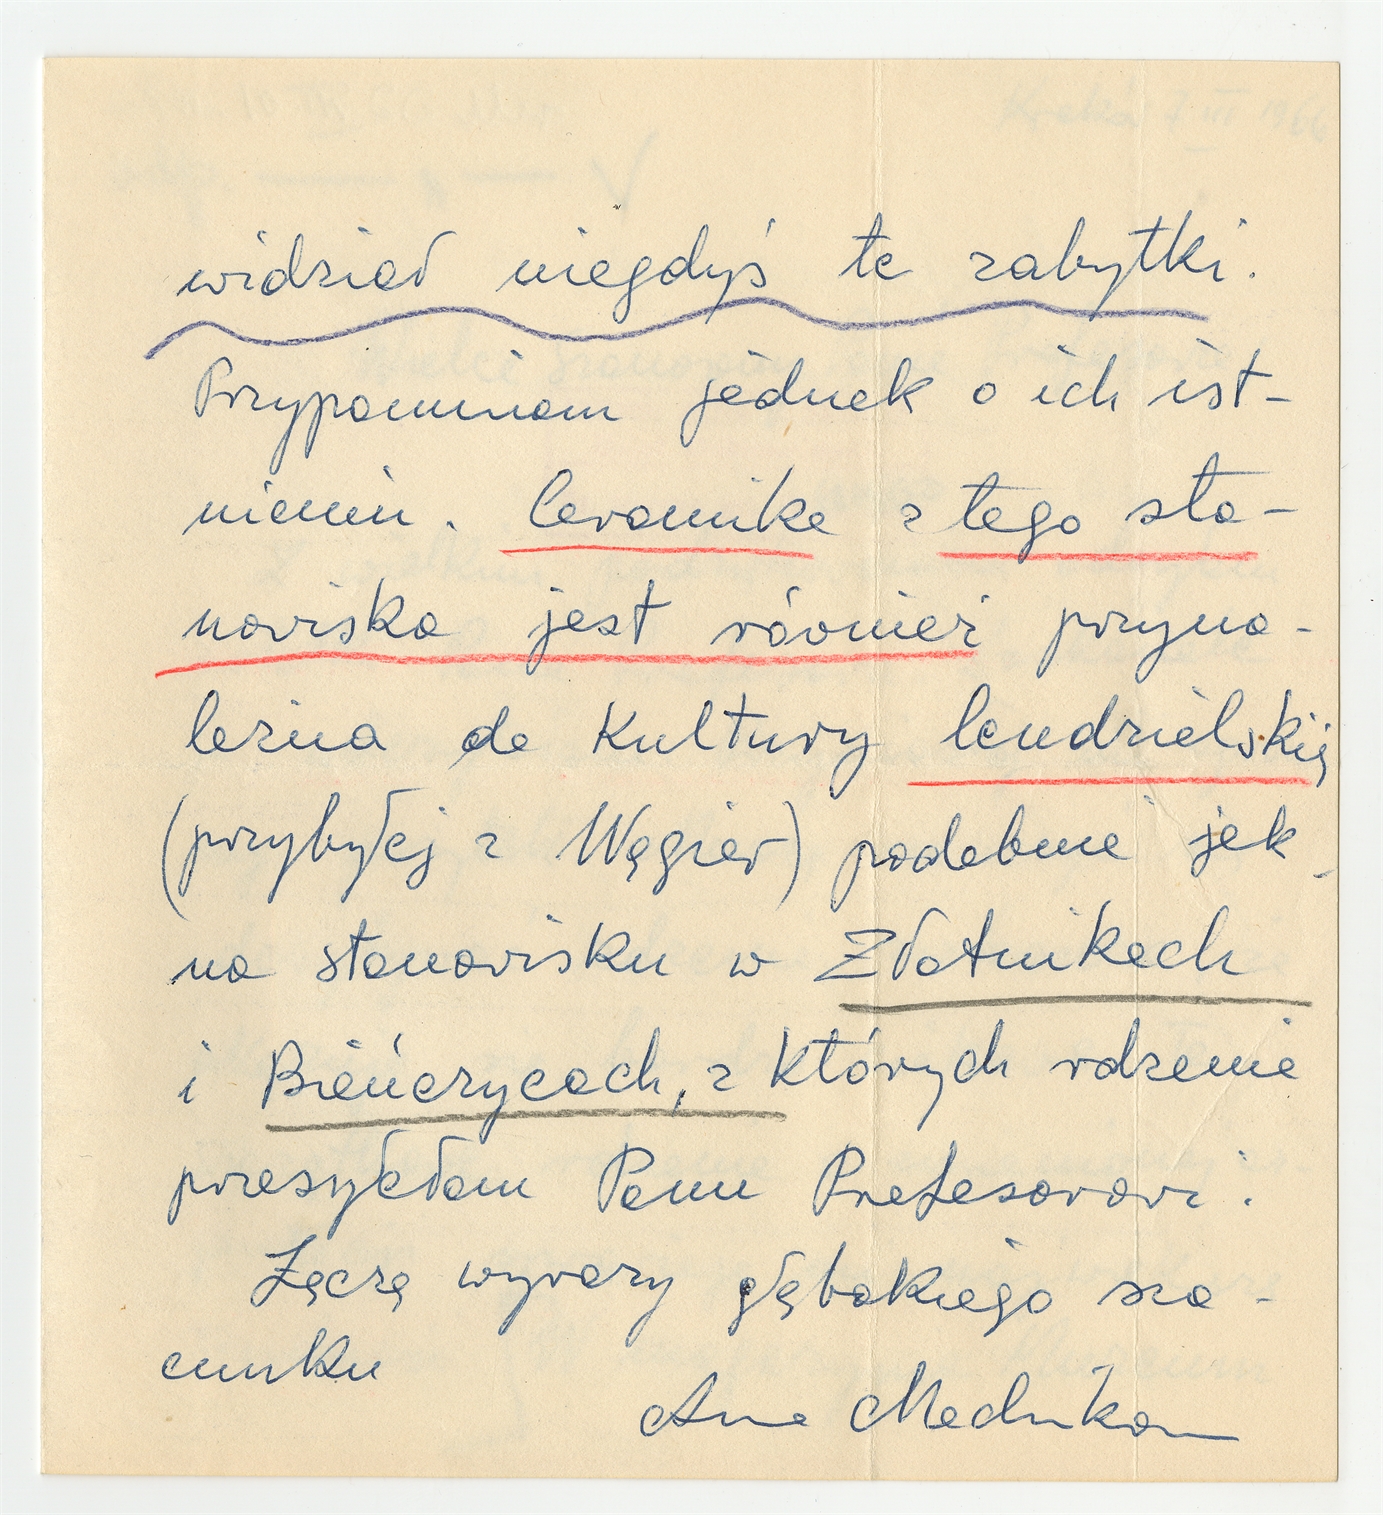 widział niegdyś te zabytki.
Przypominam jednak o ich ist-
nieniu. Ceramika z tego sta-
nowiska jest również przyna-
leżna do Kultury lendzielskiej
(przybyłej z Węgier) podobnie jak
na stanowisku w Złotnikach
i Bieńczycach, z których rdzenie
przesyłałam Panu Profesorowi.
Łączę wyrazy głębokiego sza-
cunku